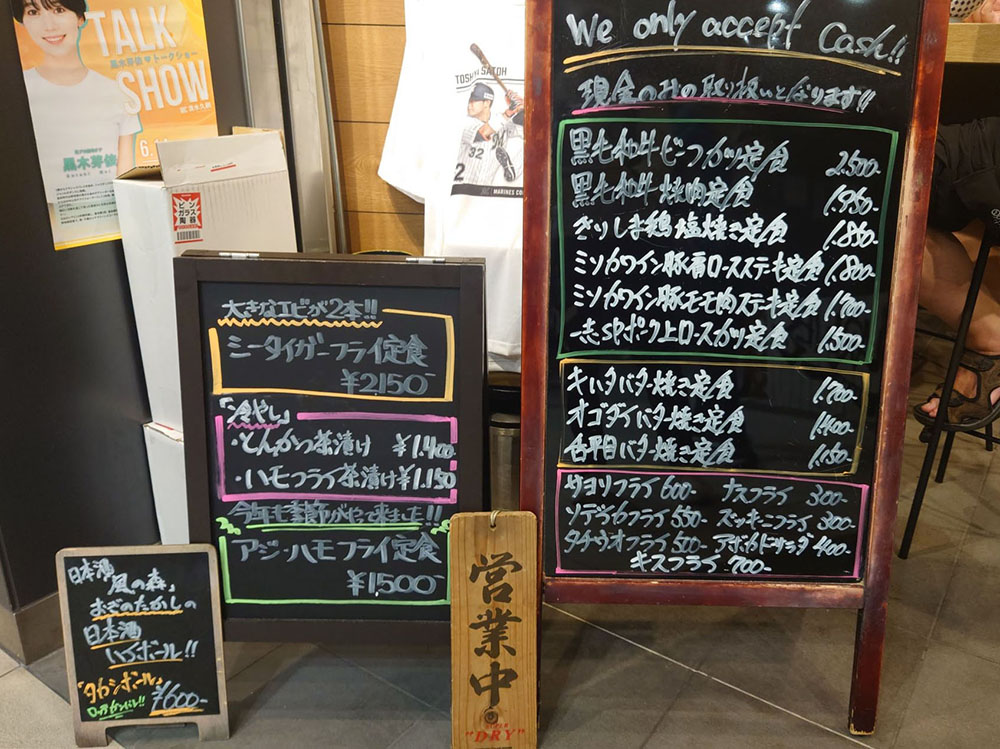 TALK
黒木芽俊♥トークショー
SHOW
黒木芽俊
6.
ビン
ガラス
陶器
TOSHIYA SATOH
32
2
MARINES
We only accept Cash!!
現金のみの取り扱いとなります!!
黒毛和牛ビーフカツ定食 2.500-
黒毛和牛焼肉定食 1.950-
きりしま鶏塩焼き定食 1.850-
ミソカワイン豚肩ロースステーキ定食 1.800-
ミソカワイン豚モモ肉ステーキ定食 1.700-
一志SPポーク上ロースカツ定食 1.500-
キハタバター焼き定食 1.700-
オゴダイバター焼き定食 1.400-
舌平目バター焼き定食 1.150-
サヨリフライ 600- ナスフライ 300-
ソデイカフライ 550- ズッキーニフライ 300-
タチウオフライ 500- アボカドサラダ 400-
キスフライ 700-
大きなエビが2本!!
シータイガーフライ定食
¥2150-
「冷やし」
・とんかつ茶漬け ¥1.400-
・ハモフライ茶漬け ¥1.150
今年も季節がやって来ました!!
アジ・ハモフライ定食
¥1,500-
日本酒
「風の森」
おぎのたかしの
日本酒
ハイボール!!
「タカシボール」
¥600-
営業中
"DRY"